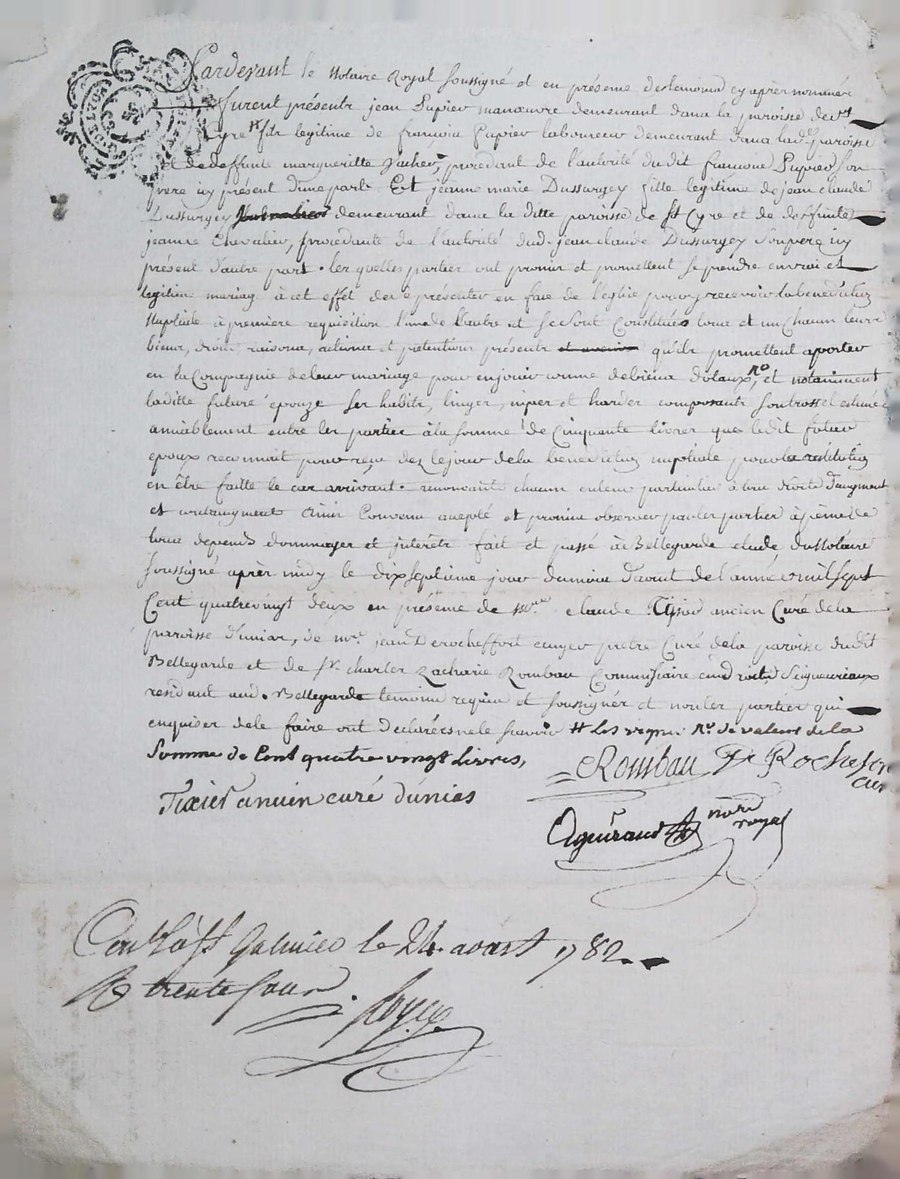 Pardevant le Notaire Royal soussigné et en présence des temoins cy après nommés
furent présents jean Pupier manœuvre demeurant dans la paroisse de st
Cyre fils legitime de francois Pupier laboureur demeurant dans lad paroisse
et de deffunte margueritte procédant de l'autorité dudit francois Pupier son
pere icy présent d'une part. Et jeanne marie Dussurgey fille legitime de jean claude
Dussurgey demeurant dans la ditte paroisse de st Cyre et de deffunte
jeanne Chevalier, procédante de l'autorité dud. jean claude Dussurgey son pere icy
présent d'autre part. les quelles parties ont promis et promettent se prendre en vrai et
légitime mariage à cet effet de se présenter en face de l'eglise pour y recevoir la bénédiction
Nuptiale à première requisition l'un de l'autre et se sont constitués tous et un chacun leurs
biens, droits raisons, actions et prétentions présents et avenir qu'ils promettent aporter
en la compagnie de leur mariage pour en jouir comme de biens dotaux, et notamment
laditte future épouze ses habits, linges, nipes et hardes composants son trossel estimé
amiablement entre les parties à la somme de Cinquante livres que ledit futur
epoux reconnait pour reçu dez le jour de la bénédiction nuptiale pour la restitution
en être faitte le cas arrivant. renoncants chacun en leur particulier à tous droits d'augment
et contraugment ainsi Convenu accepté et promis observer par les parties à peine de
tous depends dommages et interêts fait et passé à Bellegarde etude du Notaire
soussigné après midy le dix septième jour du mois d'aout de l'année mil sept
Cent quatre vingt deux en présence de mre claude Tixier ancien Curé de la
paroisse d'unias, de mre jean Derocheffort ecuyer pretre Curé de la paroisse dudit
Bellegarde et de sr charles Zacharie Rombau Commissaire aux droits Seigneuriaux
residant aud. Bellegarde temoins requis et soussignés et non les parties qui
enquises de le faire ont declarées ne le scavoir # les vignes No de valeur de la
Somme de Cent quatre vingt livres,
Rombau De Rochefort
curé
Tixier ancien curé dunias
Aguiraud nore
royal
Conlé à St Galmier le 24. aoust 1782.
R trente sous.